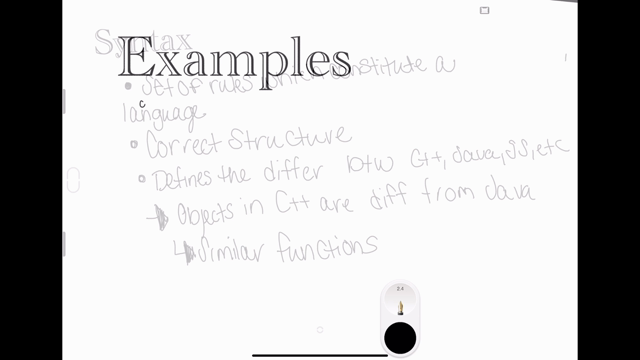 Syntax
Examples
• Set of rules which constitute a
language
• Correct Structure
• Defines the differ btw C++, Java, JS, etc
→ Objects in C++ are diff from Java
↳ Similar functions
2.4